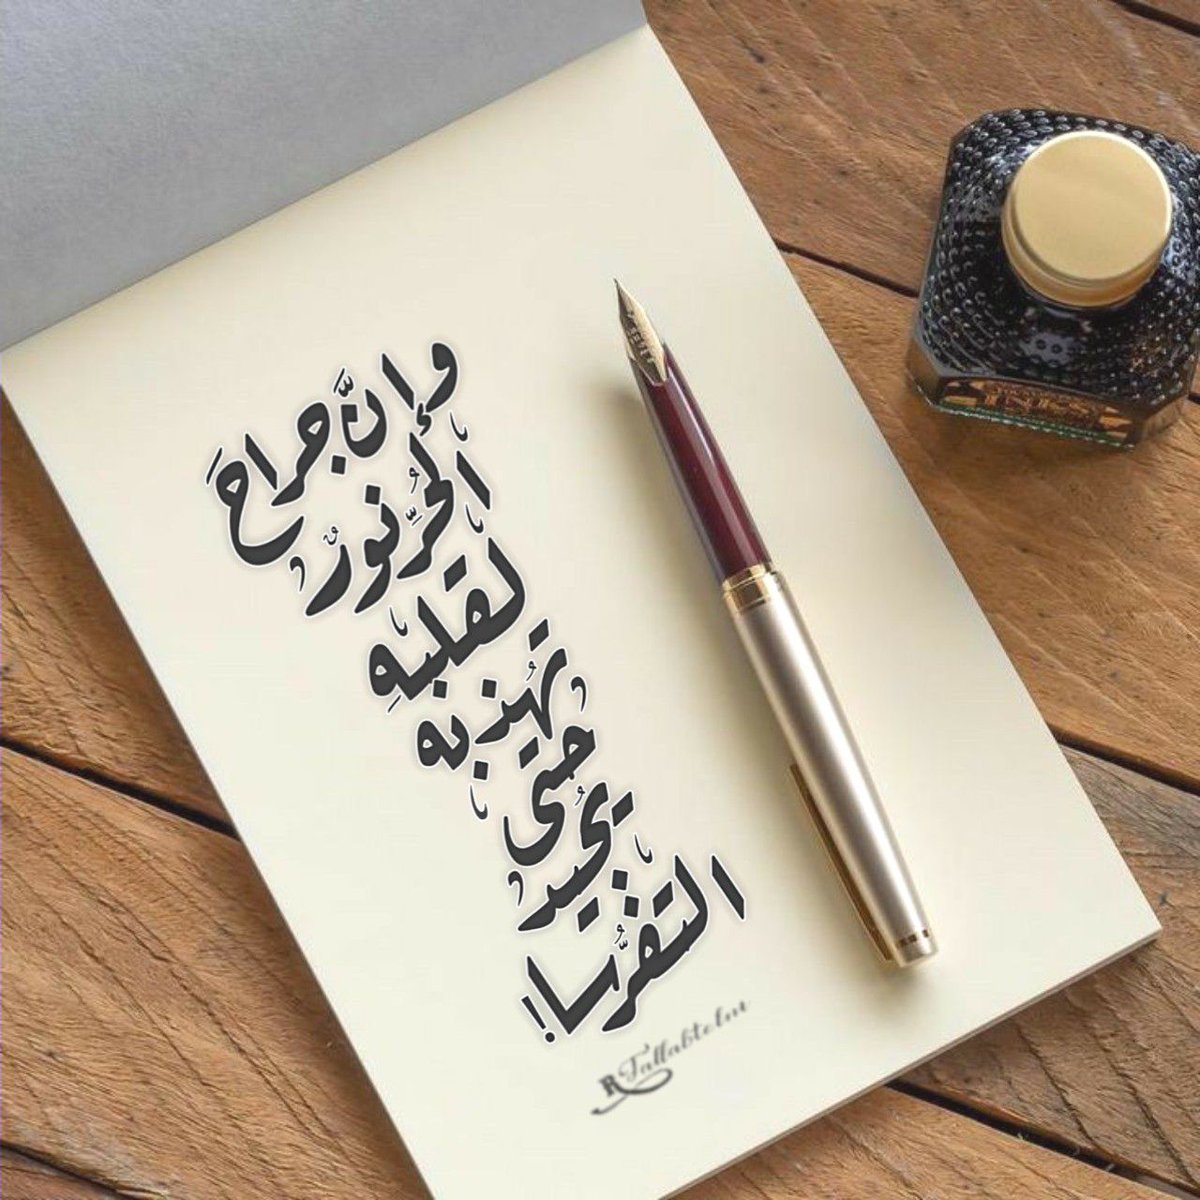 وإنَّ جراحَ
الحُرِّ نورٌ
لقلبهِ
تُهذبه
حتى
يُجيد
التفرُّسا!
R Tallabte.lm